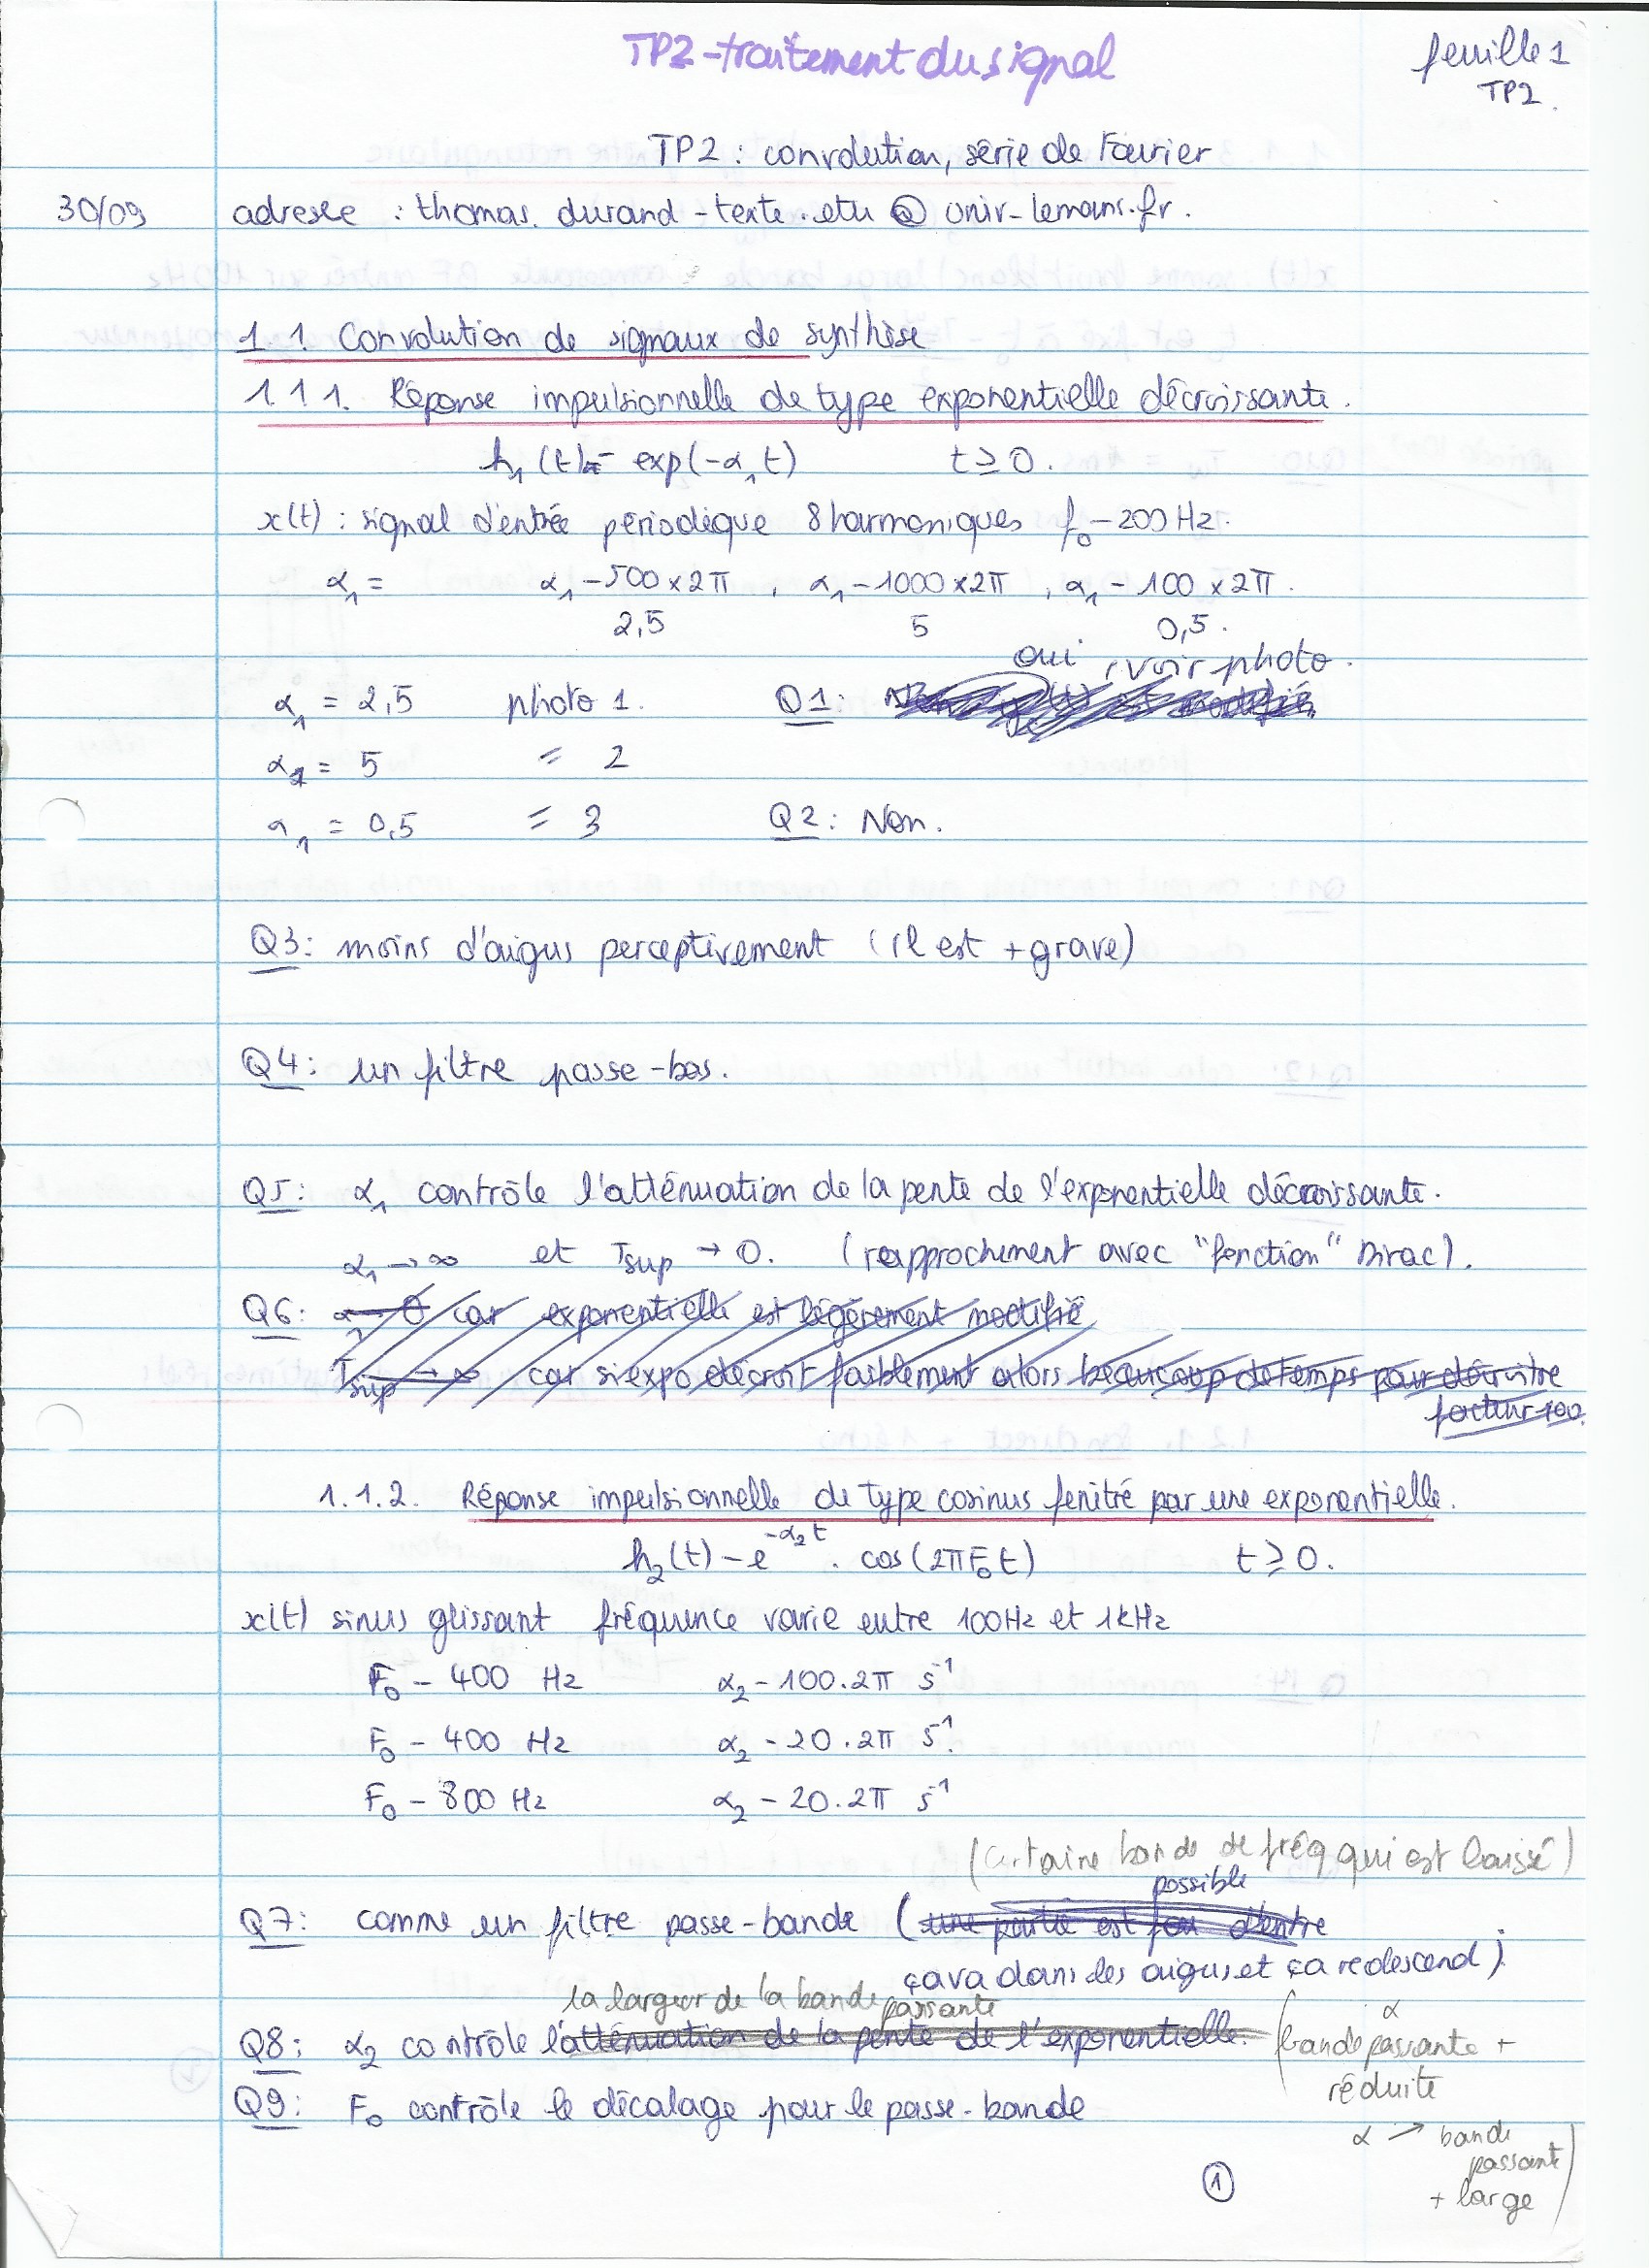 TP2-traitement du signal
feuille 1
TP2.
TP2 : convolution, série de Fourier
30/09 adresse : thomas.durand-texte.etu @ univ-lemans.fr.
1.1. Convolution de signaux de synthèse
1.1.1. Réponse impulsionnelle de type exponentielle décroissante.
h₁(t) = exp(-α₁t) t ≥ 0.
x(t) : signal d'entrée périodique 8 harmoniques f₀ - 200 Hz.
α₁ = α₁ - 500 x 2π , α₁ - 1000 x 2π , α₁ - 100 x 2π.
2,5 5 0,5.
oui , voir photo.
α₁ = 2,5 photo 1. Q1 :
α₁ = 5 = 2
α₁ = 0,5 = 3 Q2 : Non.
Q3 : moins d'aigus perceptivement (il est + grave)
Q4 : un filtre passe-bas.
Q5 : α₁ contrôle l'atténuation de la pente de l'exponentielle décroissante.
α₁ → ∞ et Tsup → 0. (rapprochement avec "fonction" Dirac).
Q6 : α₁ → 0 car exponentielle est légèrement modifié
Tsup → ∞ car si expo décroit faiblement alors beaucoup de temps pour décroitre
facteur 100.
1.1.2. Réponse impulsionnelle de type cosinus fenêtré par une exponentielle.
h₂(t) - e^-α₂t . cos(2πF₀t) t ≥ 0.
x(t) sinus glissant fréquence varie entre 100Hz et 1kHz
F₀ - 400 Hz α₂ - 100.2π s⁻¹
F₀ - 400 Hz α₂ - 20.2π s⁻¹.
F₀ - 800 Hz α₂ - 20.2π s⁻¹
(certaine bande de fréq qui est laissé)
possible
Q7 : comme un filtre passe-bande (une partie est d'entre
ça va dans les aigus et ça redescend)
la largeur de la bande passante
Q8 : α₂ contrôle l'atténuation de la pente de l'exponentielle. (α
bande passante +
réduite
Q9 : F₀ contrôle le décalage pour le passe-bande
α ↗ bande
passante
+ large)
1